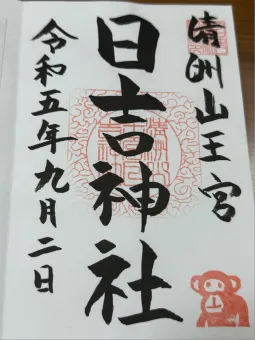 清洲山王宮
日吉神社
令和五年九月二日